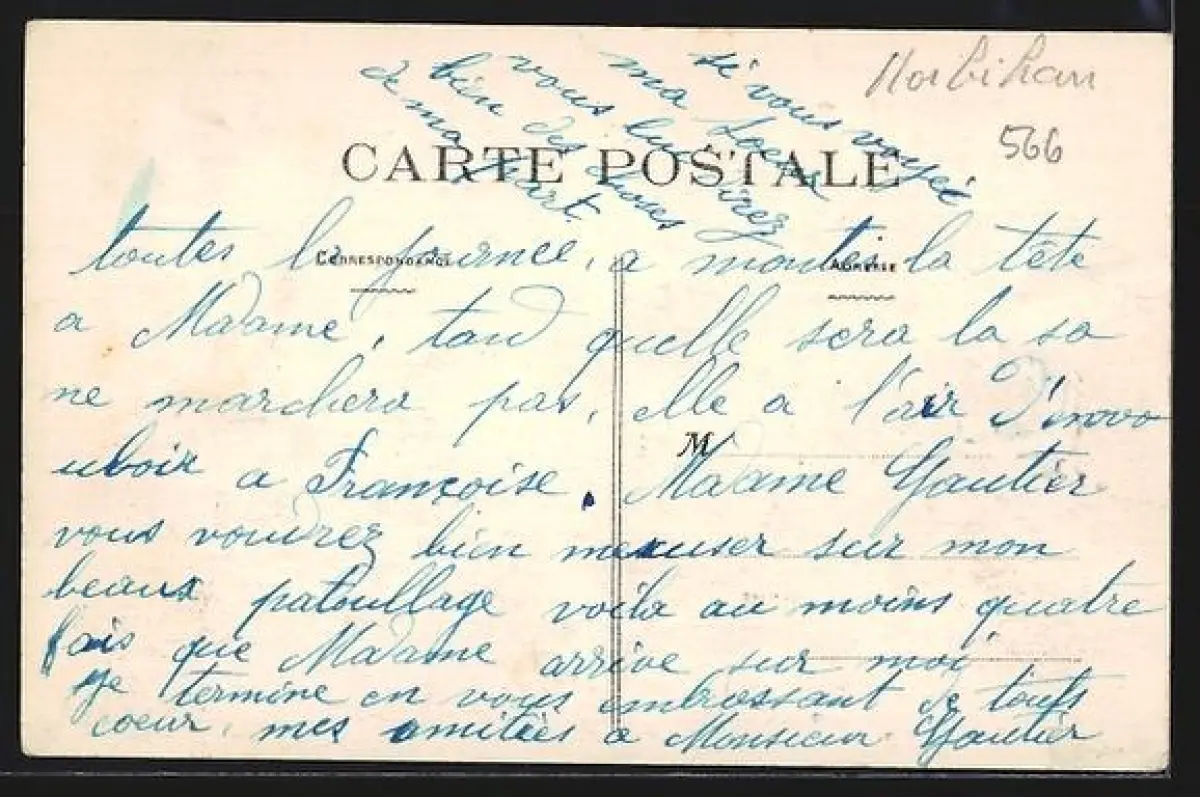 Morbihan
566
si vous voyez
ma Soeur
vous lui direz
bien des choses
de ma part.
CARTE POSTALE
CORRESPONDANCE
ADRESSE
M
toutes la journee, a montés la tête
a Madame, tand quelle sera la sa
ne marchera pas, elle a l'air D'envo
uloir a Françoise. Madame Gautier
vous voudrez bien mexuser sur mon
beaux patoullage voila au moins quatre
fois que Madame arrive sur moi,
Je termine en vous embrossant de touts
coeur, mes amitiès a Monsieur Gautier